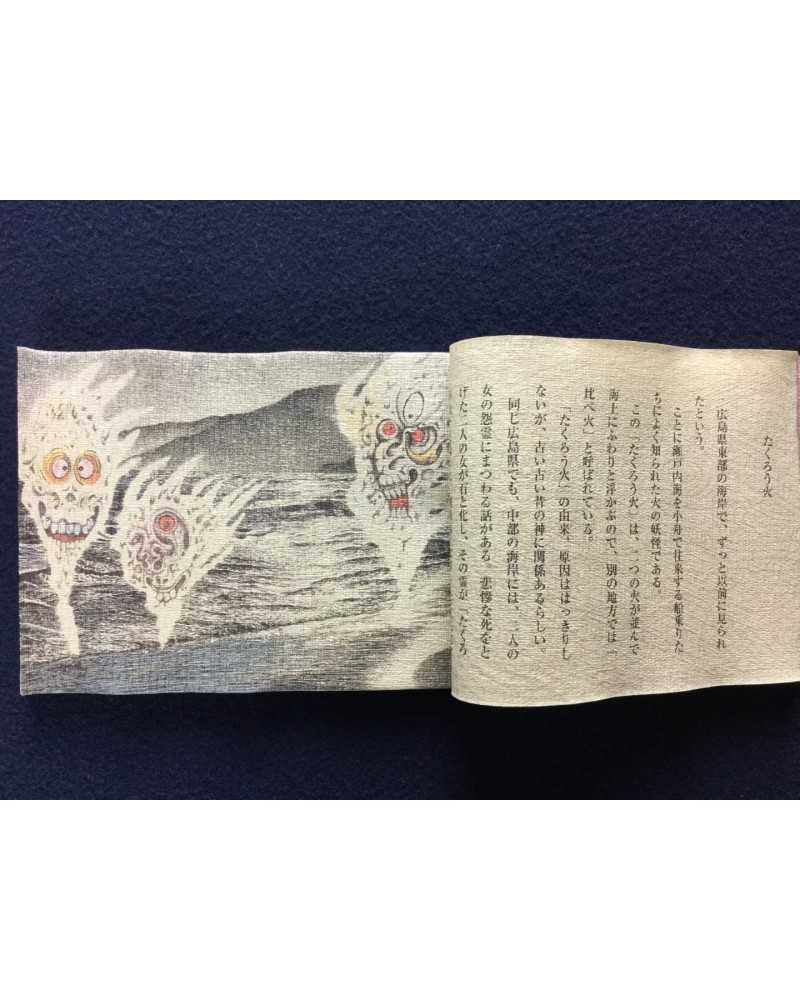 たくろう火
広島県東部の海岸で、ずっと以前に見られ
たという。
ことに瀬戸内海を小舟で往来する船乗りた
ちによく知られた火の妖怪である。
この「たくろう火」は、二つの火が並んで
海上にふわりと浮かぶので、別の地方では「
比べ火」と呼ばれている。
「たくろう火」の由来、原因ははっきりし
ないが、古い古い昔の神に関係あるらしい。
同じ広島県でも、中部の海岸には、二人の
女の怨霊にまつわる話がある。悲惨な死をと
げた二人の女が石と化し、その霊が「たくろ